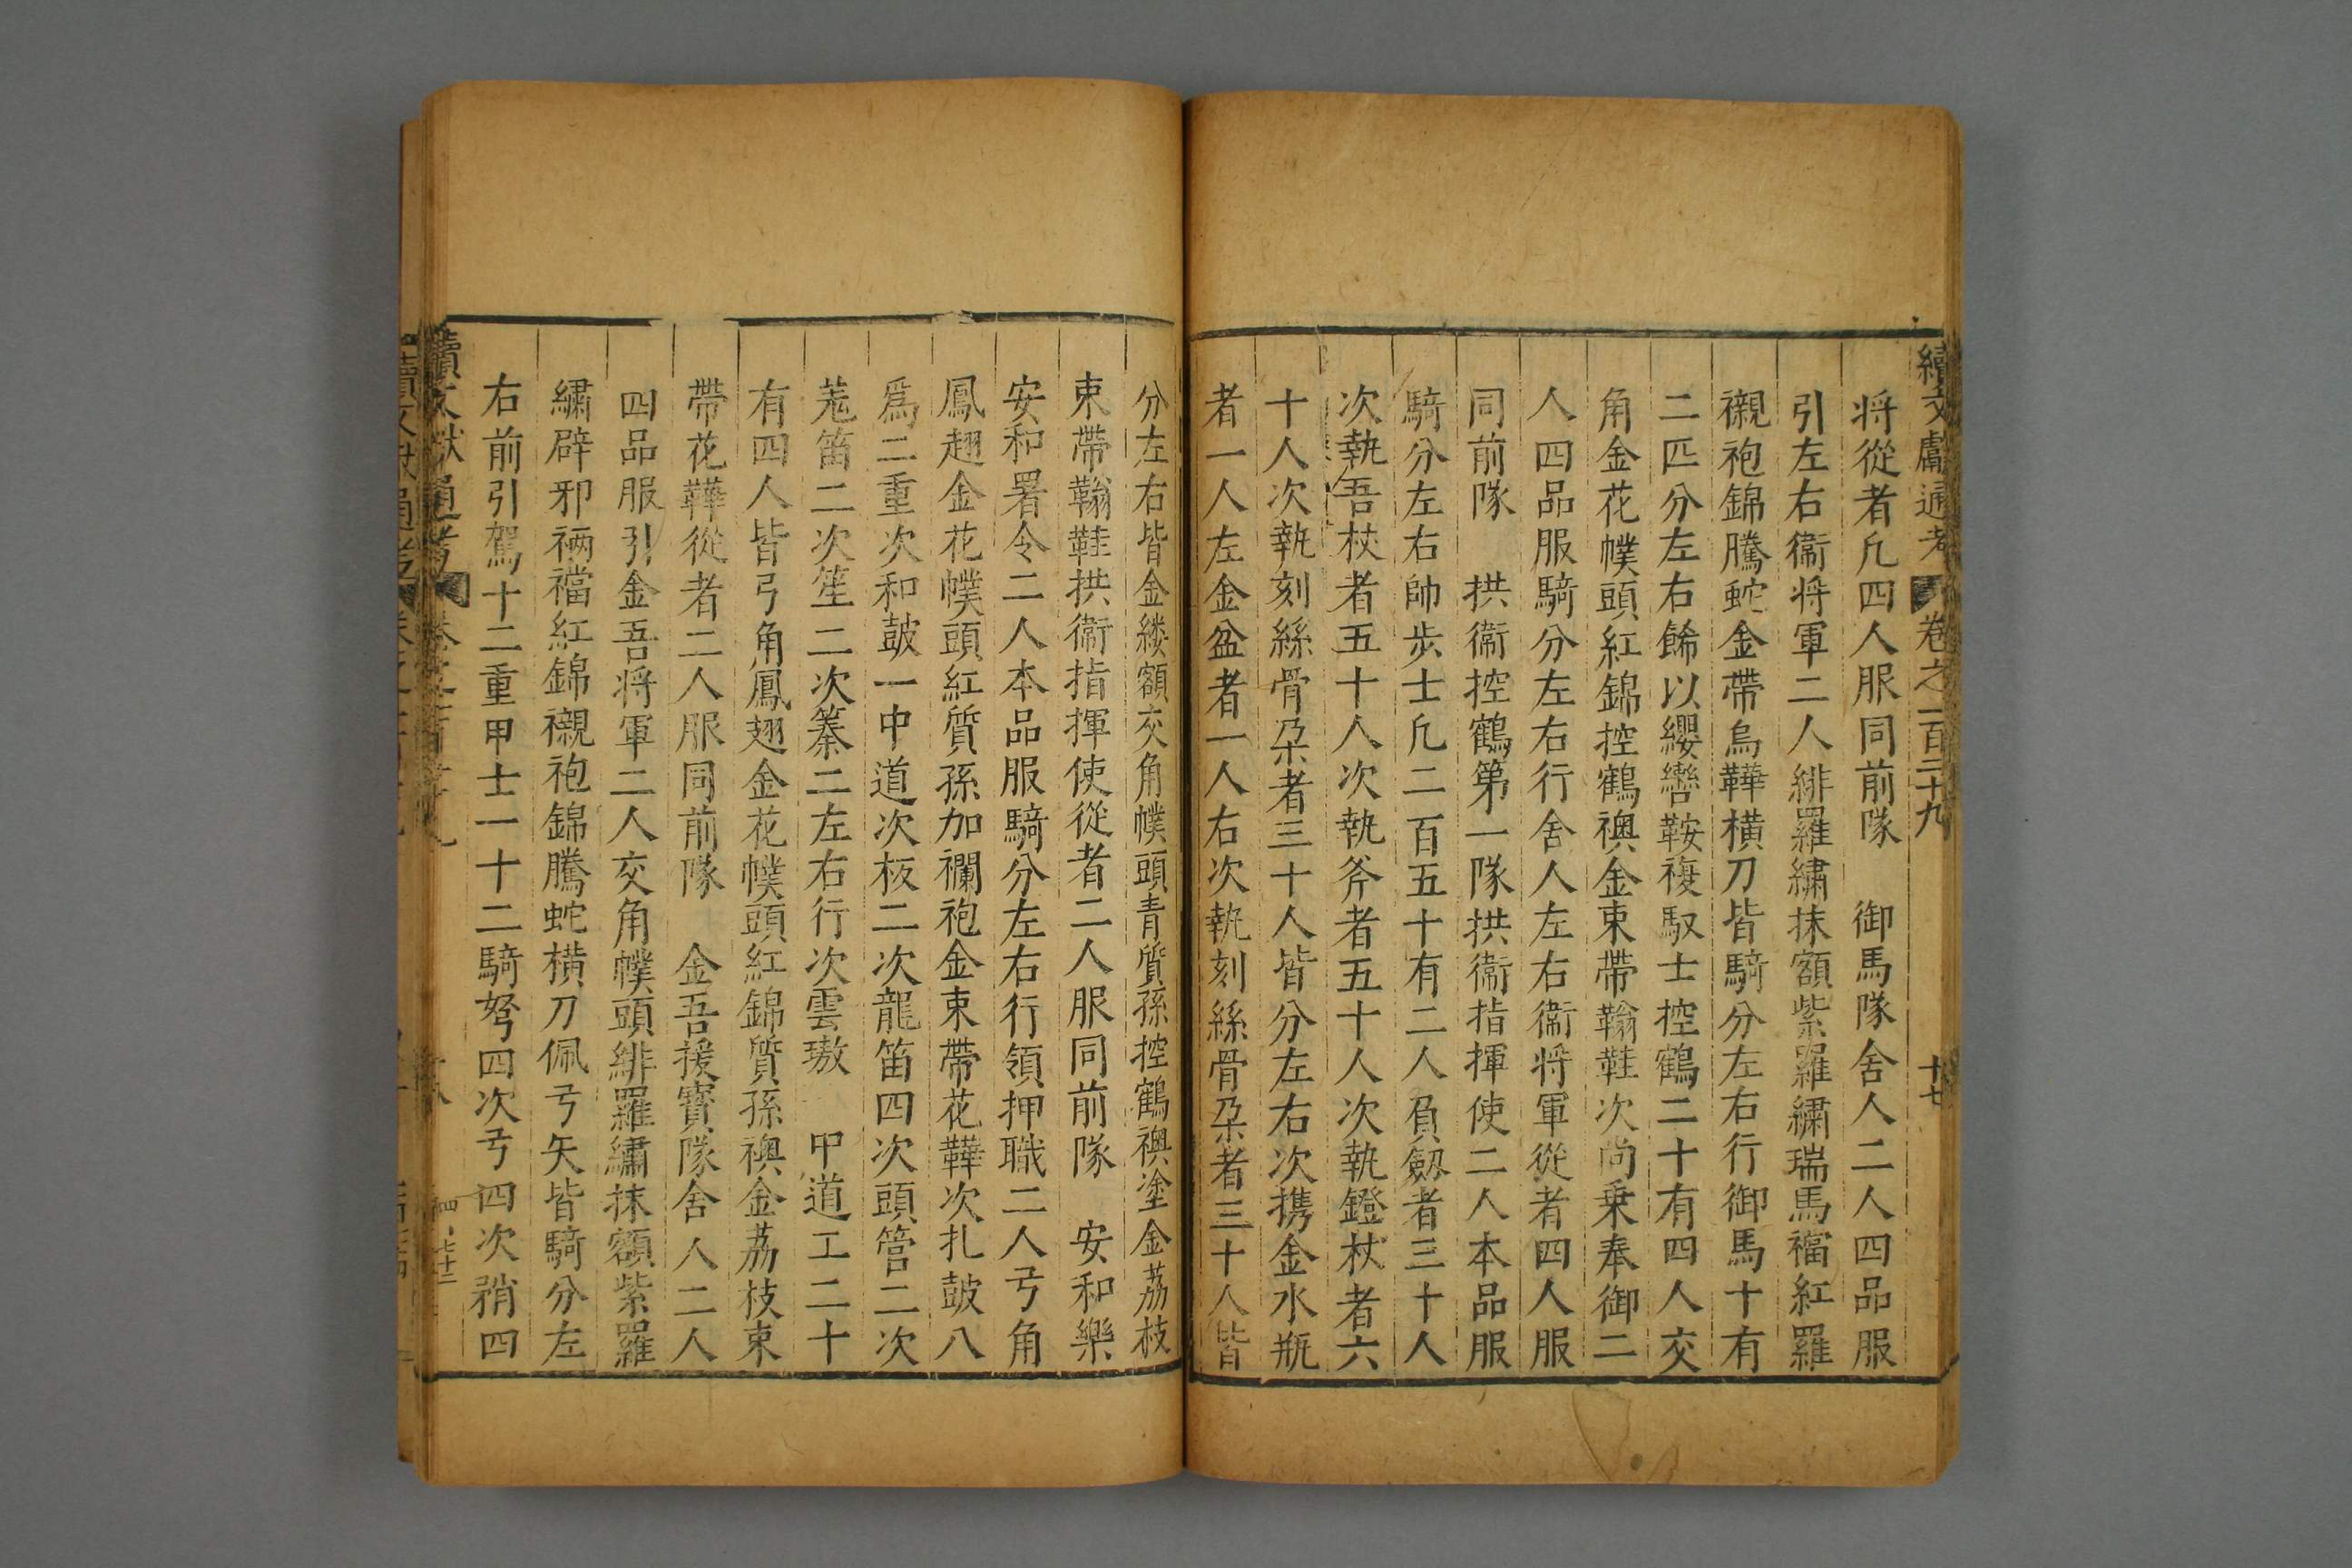 續文獻通考 卷之一百二十九 十七
將從者凡四人服同前隊 御馬隊舍人二人四品服
引左右衞將軍二人緋羅繡抹額紫羅繡瑞馬襠紅羅
襯袍錦騰蛇金帶烏鞾橫刀皆騎分左右行御馬十有
二匹分左右餙以纓轡鞍複馭士控鶴二十有四人交
角金花幞頭紅錦控鶴襖金束帶鞝鞋次尚乗奉御二
人四品服騎分左右行舍人左右衞將軍從者四人服
同前隊 拱衞控鶴第一隊拱衞指揮使二人本品服
騎分左右帥歩士凡二百五十有二人負劔者三十人
次執吾杖者五十人次執斧者五十人次執鐙杖者六
十人次執刻絲骨朶者三十人皆分左右次携金水瓶
者一人左金盆者一人右次執刻絲骨朶者三十人皆
分左右皆金縷額交角幞頭青質孫控鶴襖塗金荔枝
束帶鞝鞋拱衞指揮使從者二人服同前隊 安和樂
安和署令二人本品服騎分左右行領押職二人弓角
鳳翅金花幞頭紅質孫加襴袍金束帶花鞾次扎鼓八
爲二重次和鼓一中道次板二次龍笛四次頭管二次
羗笛二次笙二次𥱧二左右行次雲璈 中道工二十
有四人皆弓角鳳翅金花幞頭紅錦質孫襖金荔枝束
帶花鞾從者二人服同前隊 金吾援寳隊舍人二人
四品服引金吾將軍二人交角幞頭緋羅繡抹額紫羅
繡辟邪裲襠紅錦襯袍錦騰蛇橫刀佩弓矢皆騎分左
右前引駕十二重甲士一十二騎弩四次弓四次矟四